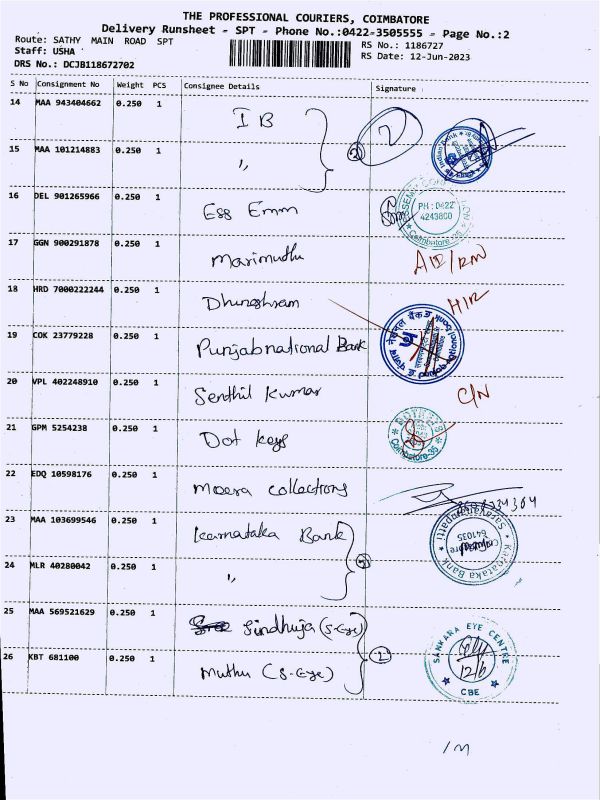 THE PROFESSIONAL COURIERS, COIMBATORE
Delivery Runsheet - SPT - Phone No.:0422-3505555 - Page No.:2
Route: SATHY MAIN ROAD SPT
RS No.: 1186727
Staff: USHA
RS Date: 12-Jun-2023
DRS No.: DCJB118672702
S No Consignment No Weight PCS Consignee Details Signature
14 MAA 943404662 0.250 1 IB
15 MAA 101214883 0.250 1 "
2
16 DEL 901265966 0.250 1 Ess Emm
PH : 0422
4243800
Coimbatore-35
17 GGN 900291878 0.250 1 Marimuthu
18 HRD 7000222244 0.250 1 Dhuneshram H/R
19 COK 23779228 0.250 1 Punjab national Bank
punjab national bank
20 VPL 402248910 0.250 1 Senthil Kumar C/N
21 GPM 5254238 0.250 1 Dot Keys
Coimbatore-35
22 EDQ 10598176 0.250 1 Meera collections
23 MAA 103699546 0.250 1 Karnataka Bank
24 MLR 40280042 0.250 1 "
2
Karnataka Bank
Saravanampatti
641035
25 MAA 569521629 0.250 1 Sindhuja (S-Eye)
26 KBT 681100 0.250 1 Muthu (S-Eye)
2
SANKARA EYE CENTRE
12/6
CBE